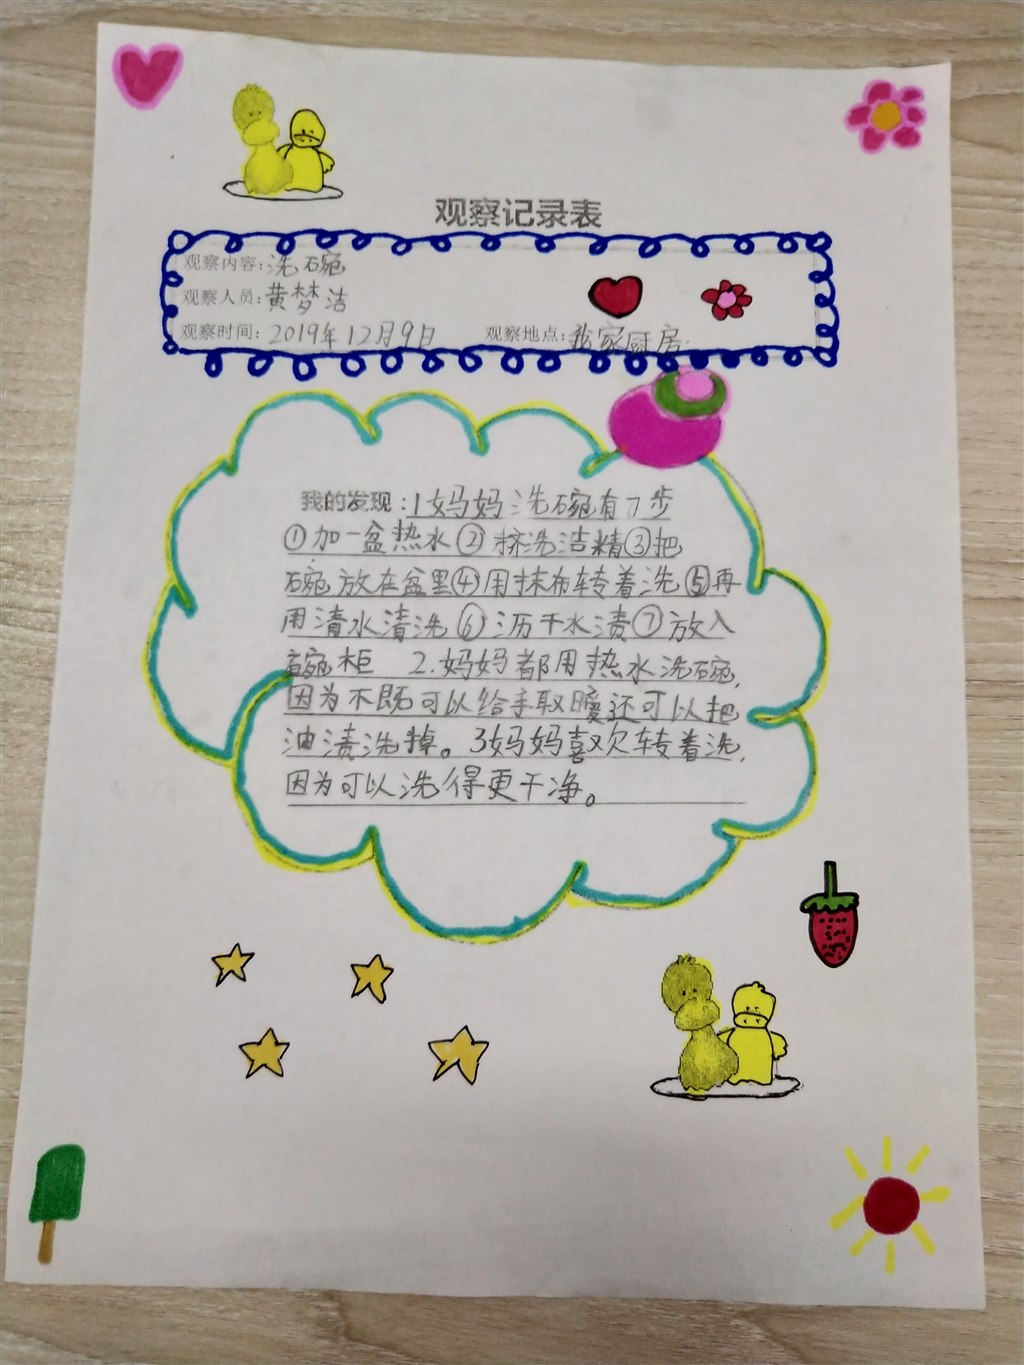 观察记录表
观察内容:洗碗
观察人员:黄梦洁
观察时间:2019年12月9日 观察地点:我家厨房.
我的发现:1妈妈洗碗有7步
①加一盆热水②挤洗洁精③把
碗放在盆里④用抹布转着洗⑤再
用清水清洗⑥沥干水渍⑦放入
碗柜 2.妈妈都用热水洗碗,
因为不既可以给手取暖还可以把
油渍洗掉。3妈妈喜欢转着洗,
因为可以洗得更干净。